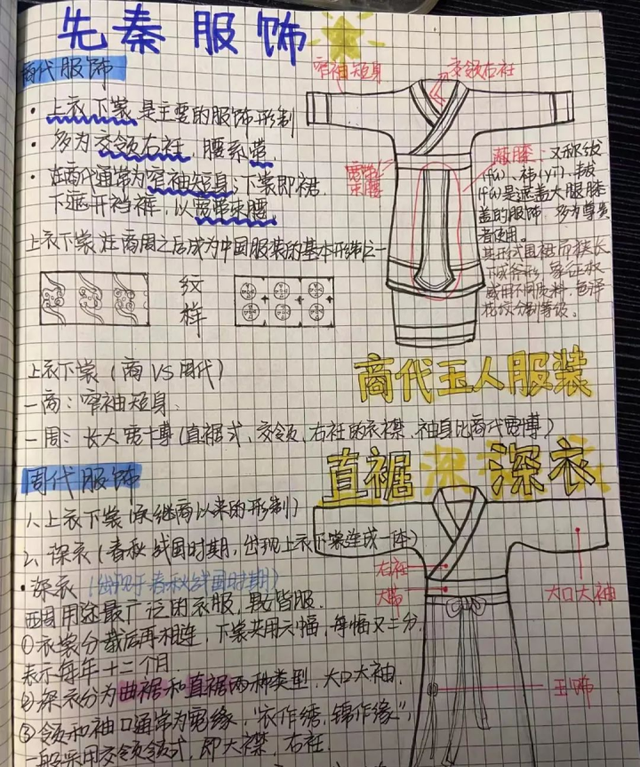 先秦服饰
商代服饰
· 上衣下裳是主要的服饰形制
· 多为交领右衽,腰系带
· 在商代通常为窄袖短身,下裳即裙,
下遮开裆裤,以宽带束腰
上衣下裳在商周之后成为中国服装的基本形制之一
纹样
窄袖短身
交领右衽
宽带束腰
蔽膝,又称绂
(fú)、袆(yī)、韨
(fú)是遮盖大腿膝
盖的服饰,多为尊贵
者使用。
其形式围裙而狭长
下成斧形,象征权
威用不同质料、色泽
花纹分别等级。
商代玉人服装
上衣下裳(商 VS 周代)
—商:窄袖短身
—周:长大宽博(直裾式、交领、右衽的衣襟、袖身比商代宽博)
周代服饰
1、上衣下裳(承继商以来的形制)
2、深衣(春秋战国时期,出现上衣下裳连成一体)
· 深衣(出现于春秋战国时期)
西周用途最广泛的衣服,男女皆服.
①衣裳分裁后再相连,下裳共用六幅,每幅又二分.
表示每年十二个月.
②深衣分为曲裾和直裾两种类型,大口大袖.
③领和袖口通常为宽缘,“衣作绣,锦作缘”,
一般采用交领领式,即大襟、右衽
直裾深衣
右衽
大带
大口大袖
玉饰